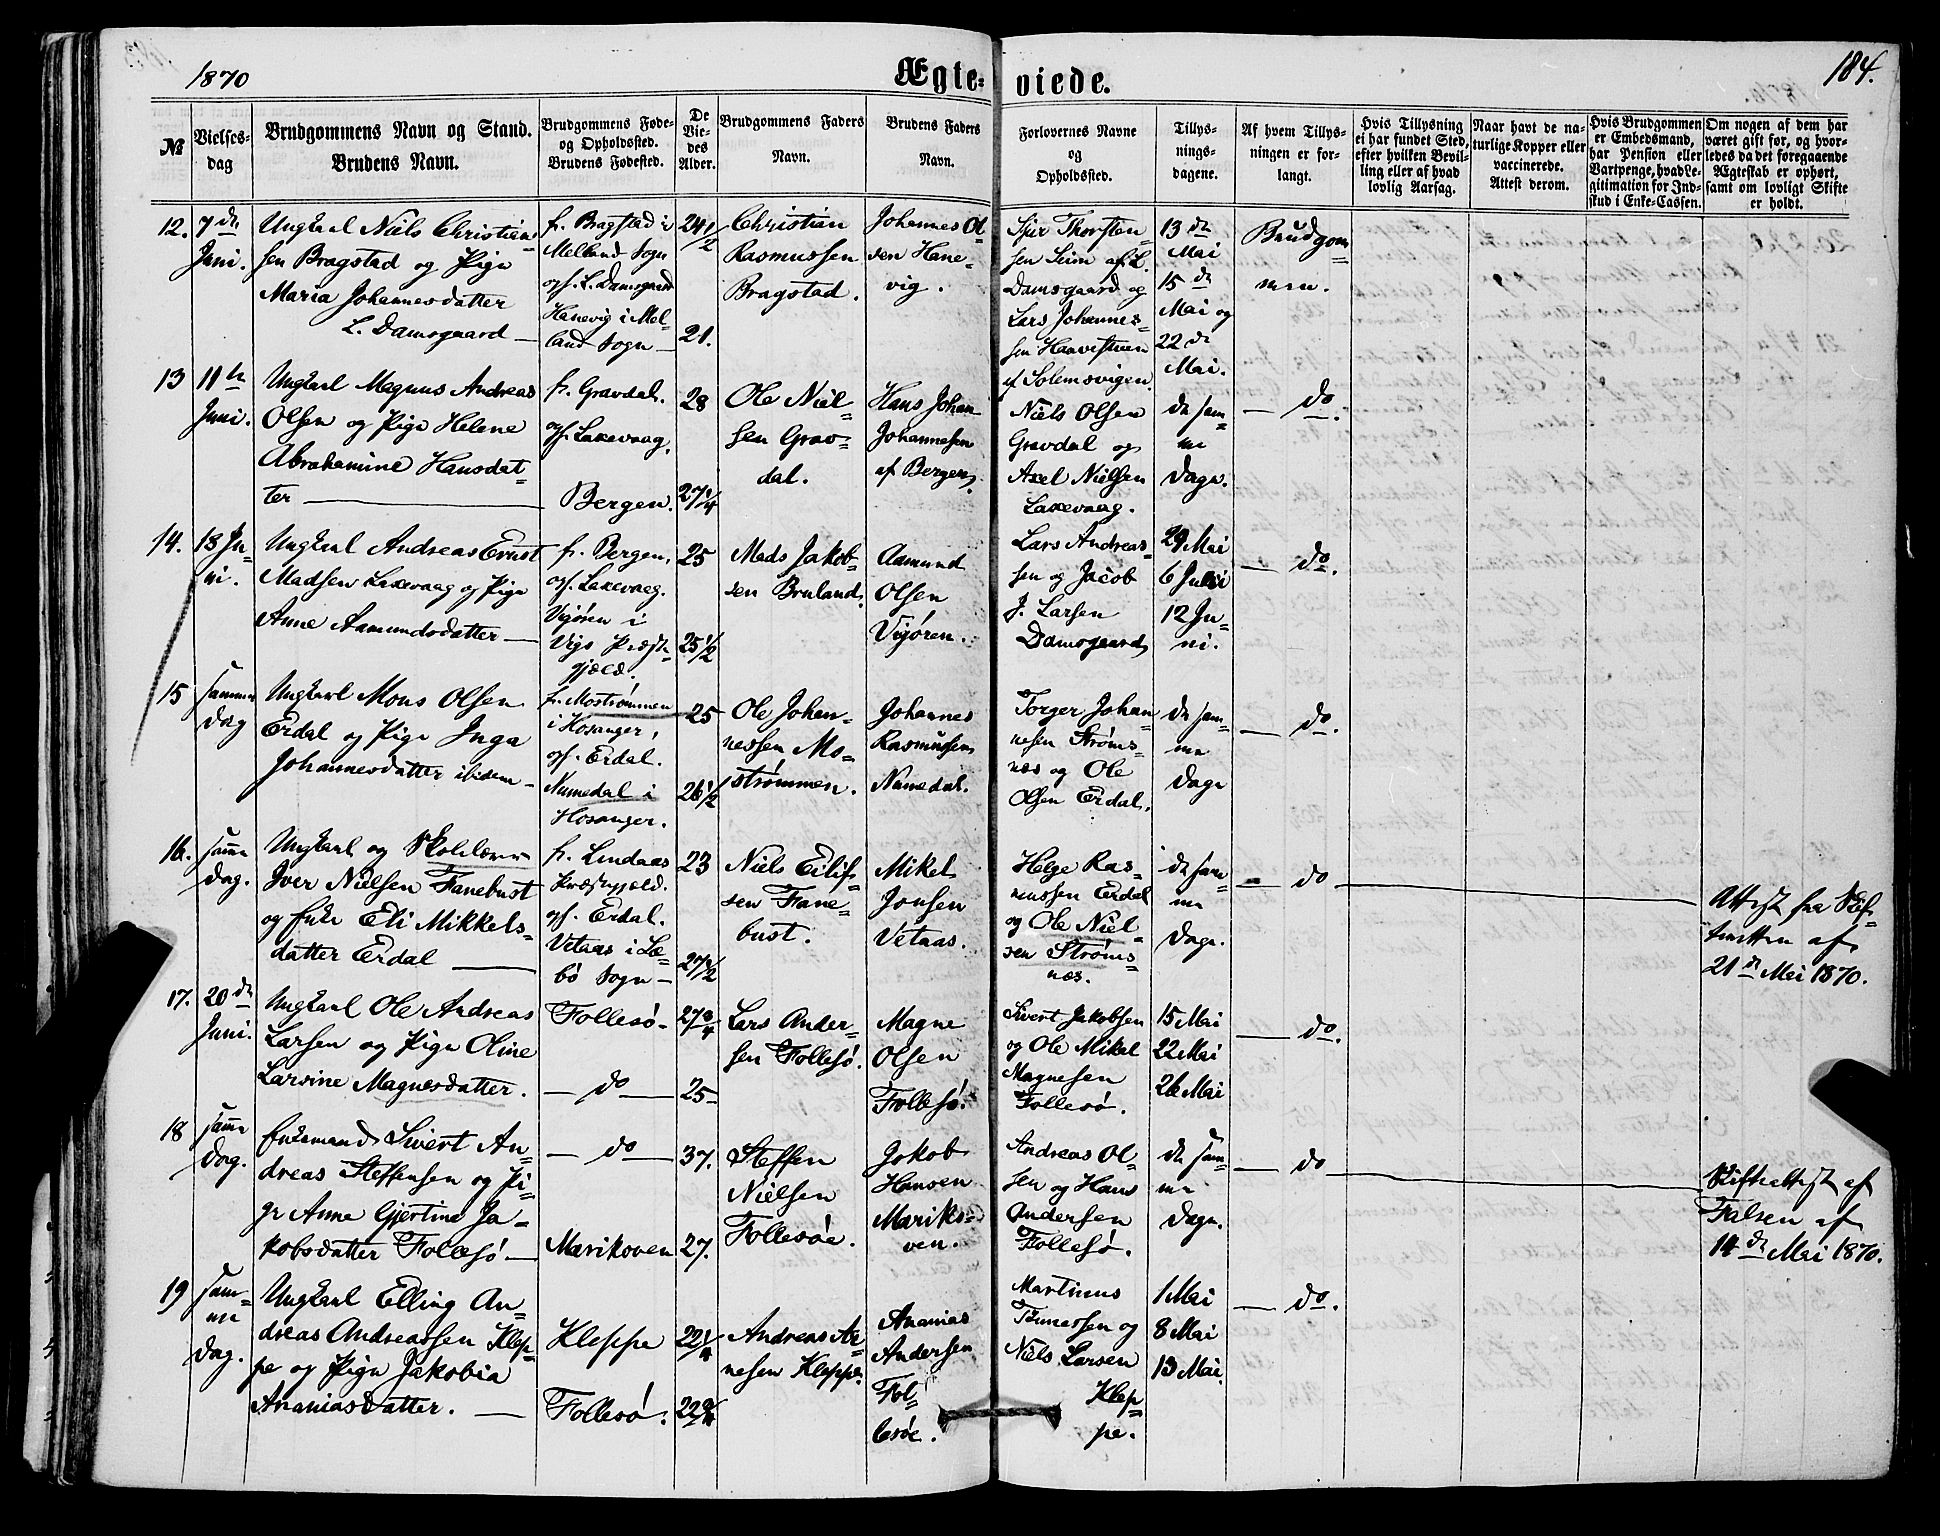 1870
Ægte-
viede.
184.
№
Vielses-
dag
Brudgommens Navn og Stand.
Brudens Navn.
Brudgommens Føde-
og Opholdssted.
Brudens Fødested.
De
Vie-
des
Alder.
Brudgommens Faders
Navn.
Brudens Faders
Navn.
Forlovernes Navne
og
Opholdssted.
Tillys-
nings-
dagene.
Af hvem Tillys-
ningen er for-
langt.
Hvis Tillysning
ei har fundet Sted,
efter hvilken Bevil-
ling eller af hvad
lovlig Aarsag.
Naar havt de na-
turlige Kopper eller
vaccinerede.
Attest derom.
Hvis Brudgommen
er Embedsmand,
har Pension eller
Vartpenge, hvad Le-
gitimation for Ind-
skud i Enke-Cassen.
Om nogen af dem har
været gift før, og hvor-
ledes da det foregaaende
Ægteskab er ophørt,
samt om lovligt Skifte
er holdt.
12.
7de
Juni.
Ungkarl Niels Christian-
sen Bragstad og Pige
Maria Johannesdatter
L. Damsgaard
f. Bragstad i
Melland Sogn
opf. L. Damsgaard
Hanevig i Mel-
land Sogn
24 1/2
21.
Christian
Rasmussen
Bragstad.
Johannes Ol-
sen Hane-
vig.
Sjur Thorsten-
sen Seim af L.
Damsgaard og
Lars Johannes-
sen Haavestuen
af Solemsvigen.
13de
Mai
15de
Mai og
22de
Mai.
Brudgom-
men.
13
11te
Juni.
Ungkarl Magnus Andreas
Olsen og Pige Helene
Abrahamine Hansdat-
ter
f. Gravdal.
opf. Laxevaag.
Bergen.
28
27 1/4
Ole Niel-
sen Grav-
dal.
Hans Johan
Johannesen
af Bergen.
Niels Olsen
Gravdal og
Axel Nielsen
Laxevaag.
de sam-
me
Dage.
do.
14.
18 Ju-
ni.
Ungkarl Andreas Ernst
Madsen Laxevaag og Pige
Anne Aamundsdatter
f. Bergen,
opf. Laxevaag.
Vigøren i
Vigs Præste-
gjæld.
25
25 1/2
Mads Jakob-
sen Bruland.
Aamund
Olsen
Vigøren.
Lars Andreas-
sen og Jacob
J. Larsen
Damsgaard
29 Mai
6 Juni
12 Ju-
ni.
do.
15
samme
Dag
Ungkarl Mons Olsen
Erdal og Pige Inga
Johannesdatter ibidem
f. Mostrømmen
i Hosanger,
opf. Erdal.
Numedal i
Hosanger.
25
26 1/2
Ole Johan-
nessen Mo-
strømmen.
Johannes
Rasmussen
Numedal.
Torger Johan-
nesen Strøms-
næs og Ole
Olsen Erdal.
de sam-
me
Dage
do.
16.
samme
Dag.
Ungkarl og Skolelærer
Iver Nielsen Fanebust
og Enke Eli Mikkels-
datter Erdal
f. Lindaas
Præstegjæld.
opf. Erdal.
Vetaas i Sæ-
bø Sogn
23
27 1/2
Niels Eilif-
sen Fane-
bust.
Mikel
Jonsen
Vetaas.
Helge Ras-
mussen Erdal
og Ole Niel-
sen Strøms-
næs.
de sam-
me
Dage.
do
Attest fra Skif-
teretten af
21de Mai 1870.
17.
20de
Juni.
Ungkarl Ole Andreas
Larsen og Pige Oline
Larsine Magnesdatter.
Follesø
do
27 3/4
25
Lars Ander-
sen Follesø.
Magne
Olsen
Follesø.
Sivert Jakobsen
og Ole Mikal
Magnesen
Follesø.
15 Mai
22 Mai
26 Mai
do.
18
samme
Dag.
Enkemand Sivert An-
dreas Steffensen og Pi-
ge Anne Gjertine Ja-
kobsdatter Follesø
do
Marikoven
37.
27.
Steffen
Nielsen
Follesøe.
Jakob
Hansen
Mariko-
ven.
Andreas Ol-
sen og Hans
Andersen
Follesø.
de sam-
me
Dage.
do
Skifteattest af
Falsen af
14de Mai 1870.
19
sam-
me
Dag.
Ungkarl Elling An-
dreas Andreassen Klep-
pe og Pige Jakobia
Ananiasdatter.
Kleppe
Follesø.
22 1/4
22 3/4
Andreas Ar-
nesen Kleppe.
Ananias
Andersen
Fol-
lesøe.
Martinus
Tønnessen og
Niels Larsen
Klep-
pe.
1 Mai
8 Mai
13 Mai
do.